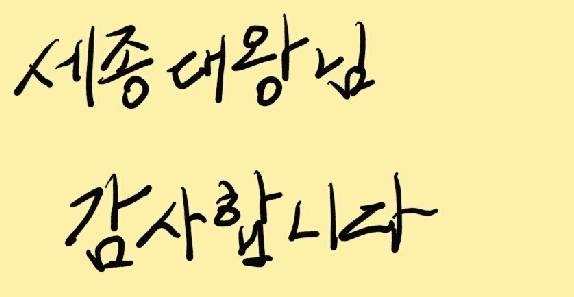 세종대왕님
감사합니다